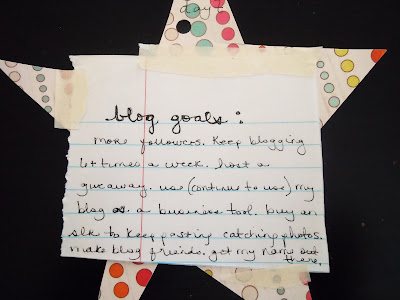 day 7
blog goals:
more followers. Keep blogging
6+ times a week. host a
giveaway. use (continue to use) my
blog as a business tool. buy an
slr to keep posting catching photos.
make blog friends. get my name out
there.